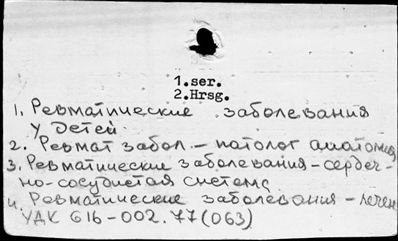 1.ser.
2.Hrsg.
1. Ревматические заболевания
у детей
2. Ревмат забол. - патолог анатомия
3. Ревматические заболевания - сердеч-
но-сосудистая система
4. Ревматические заболевания - лечен
УДК 616-002.77(063)